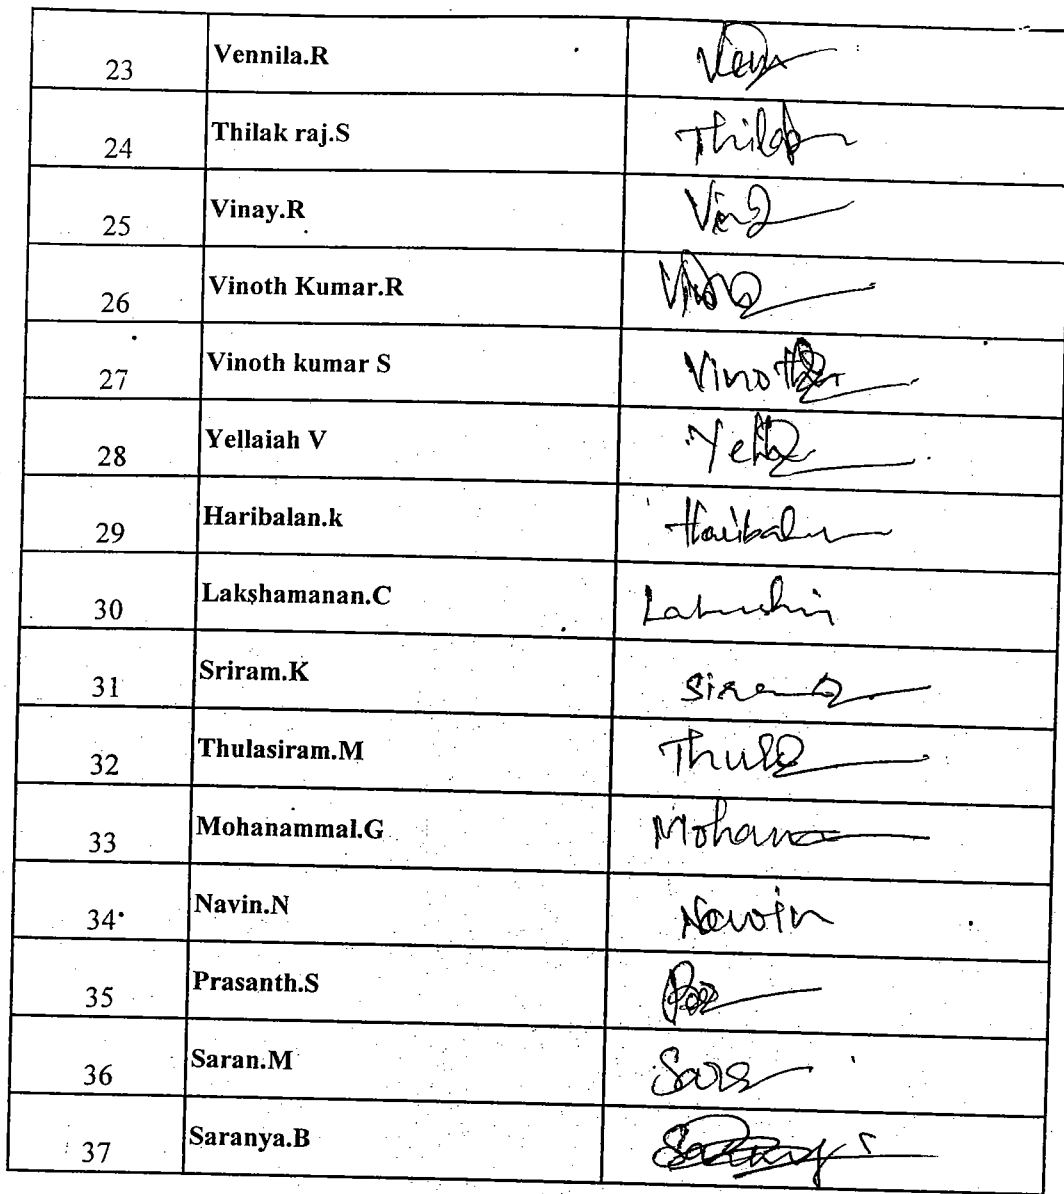 23 Vennila.R
24 Thilak raj.S Thilak
25 Vinay.R
26 Vinoth Kumar.R
27 Vinoth kumar S Vinoth
28 Yellaiah V
29 Haribalan.k Haribalan
30 Lakshamanan.C
31 Sriram.K
32 Thulasiram.M
33 Mohanammal.G Mohana
34 Navin.N Navin
35 Prasanth.S
36 Saran.M
37 Saranya.B